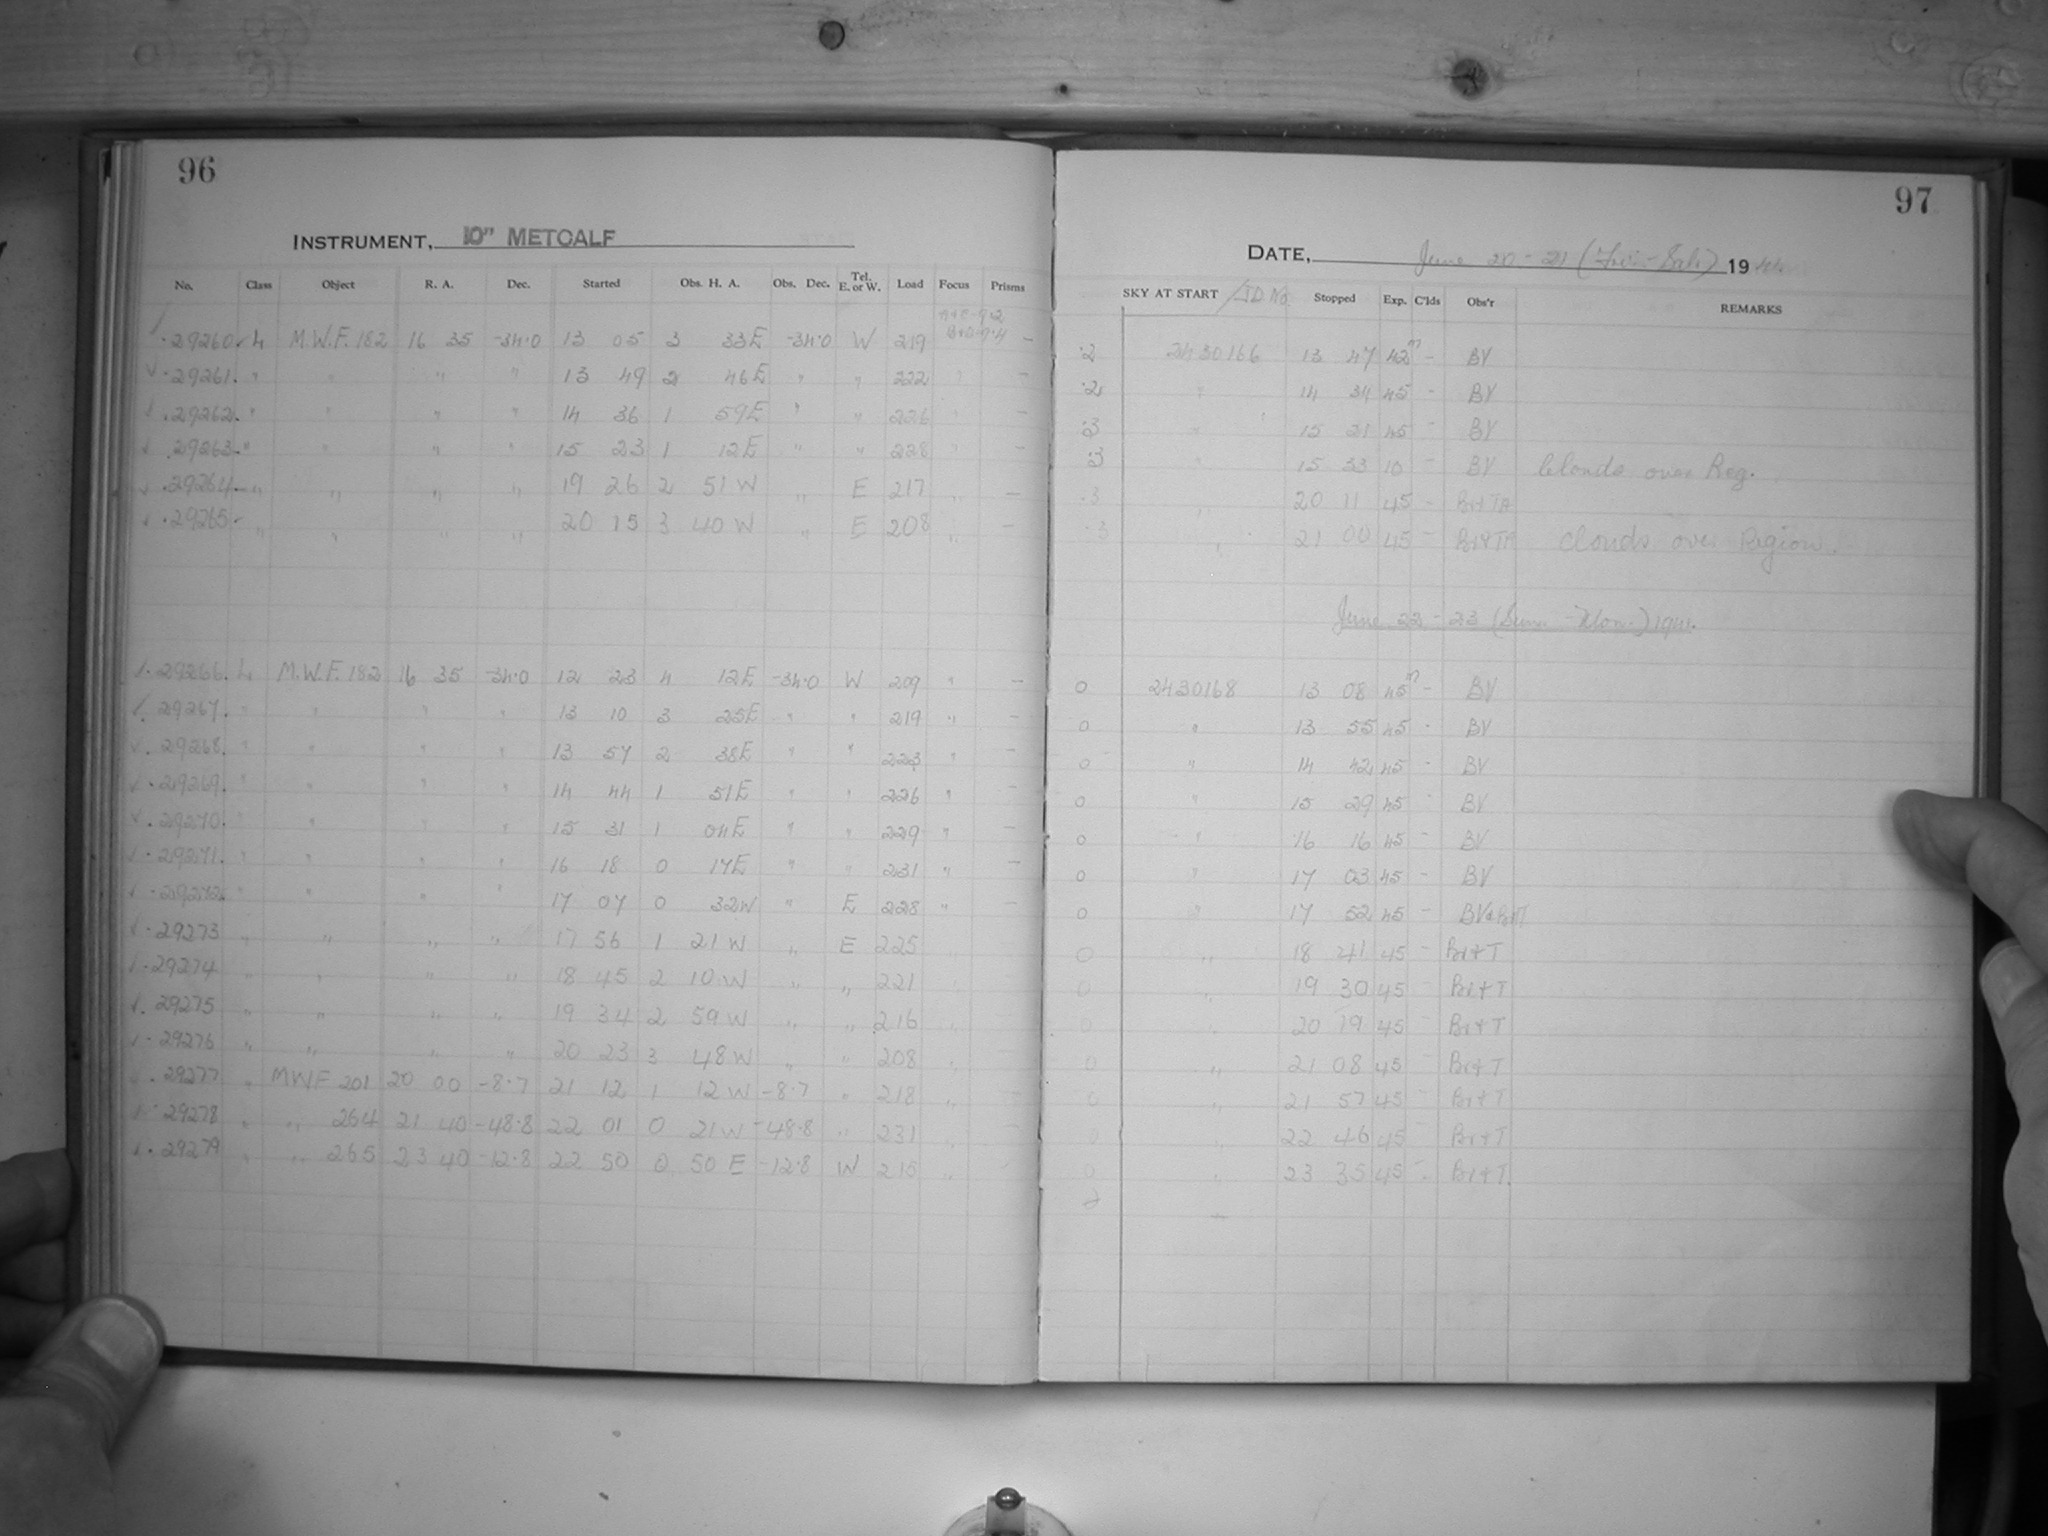 96
INSTRUMENT, 10" METCALF
No. Class Object R. A. Dec. Started Obs. H. A. Obs. Dec. Tel. E. or W. Load Focus Prisms
29260 L M.W.F. 182 16 35 -34.0 13 05 3 33E -34.0 W 219 -
29261 " " " " 13 49 2 46E " " 222 " -
29262 " " " " 14 36 1 59E " " 226 " -
29263 " " " " 15 23 1 12E " " 228 " -
29264 " " " " 19 26 2 51 W " E 217 " -
29265 " " " " 20 15 3 40 W " E 208 " -
29266 L M.W.F. 182 16 35 -34.0 12 23 4 12E -34.0 W 209 " -
29267 " " " " 13 10 3 25E " " 219 " -
29268 " " " " 13 57 2 38E " " 223 " -
29269 " " " " 14 44 1 51E " " 226 " -
29270 " " " " 15 31 1 04E " " 229 " -
29271 " " " " 16 18 0 17E " " 231 " -
29272 " " " " 17 07 0 32W " E 228 " -
29273 " " " " 17 56 1 21 W " E 225
29274 " " " " 18 45 2 10 W " " 221
29275 " " " " 19 34 2 59 W " " 216
29276 " " " " 20 23 3 48 W " " 208
29277 " MWF 201 20 00 -8.7 21 12 1 12 W -8.7 " 218
29278 " " 264 21 40 -48.8 22 01 0 21 W -48.8 " 231
29279 " " 265 23 40 -12.8 22 50 0 50 E -12.8 W 215
97
DATE, June 20-21 (Fri.-Sat.) 1941
SKY AT START /JD No. Stopped Exp. C'lds Obs'r REMARKS
.2 2430166 13 47 42m - BV
.2 " 14 34 45 - BV
.3 " 15 21 45 - BV
.3 " 15 33 10 - BV Clouds over Reg.
.3 " 20 11 45 -
.3 " 21 00 45 - clouds over Region.
June 22-23 (Sun.-Mon.) 1941.
0 2430168 13 08 45m - BV
0 " 13 55 45 - BV
0 " 14 42 45 - BV
0 " 15 29 45 - BV
0 " 16 16 45 - BV
0 " 17 03 45 - BV
0 " 17 52 45 -
0 " 18 41 45 - Br+T
0 " 19 30 45 - Br+T
0 " 20 19 45 - Br+T
0 " 21 08 45 - Br+T
0 " 21 57 45 - Br+T
0 " 22 46 45 - Br+T
0 " 23 35 45 - Br+T.